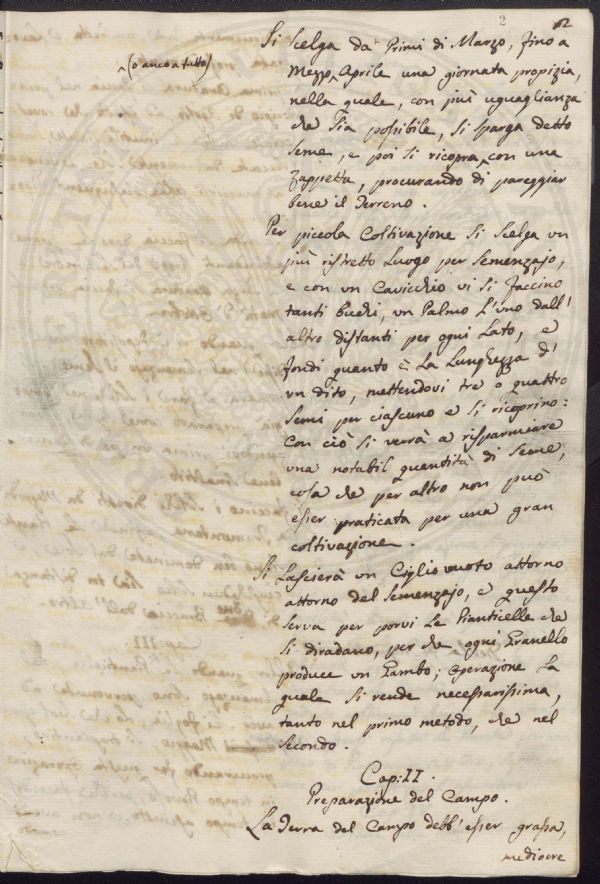 2 2
Si scelga da' Primi di Marzo, fino a
(o anco a tutto)
Mezzo Aprile una giornata propizia,
nella quale, con più uguaglianza
che sia possibile, si sparga detto
seme, e poi si ricopra con una
Zappetta, procurando di pareggiar
bene il Terreno.
Per piccola Coltivazione si scelga un
più ristretto Luogo per Semenzajo,
e con un Cavicchio vi si faccino
tanti buchi, un Palmo l'uno dall'
altro distanti per ogni Lato, e
fondi quanto è La Lunghezza d'
un dito, mettendovi tre o quattro
Semi per ciascuno e si ricoprino:
Con ciò si verrà a risparmiare
una notabil quantità di seme,
cosa che per altro non può
esser praticata per una gran
coltivazione.
Si Lascierà un Ciglio vuoto attorno
attorno del Semenzajo, e questo
serva per porvi Le Pianticelle che
si diradano, per che ogni Granello
produce un Gambo; Operazione La
quale si rende necessarissima,
tanto nel primo metodo, che nel
Secondo.
Cap: II.
Preparazione del Campo.
La Terra del Campo debb'esser grassa,
mediocre